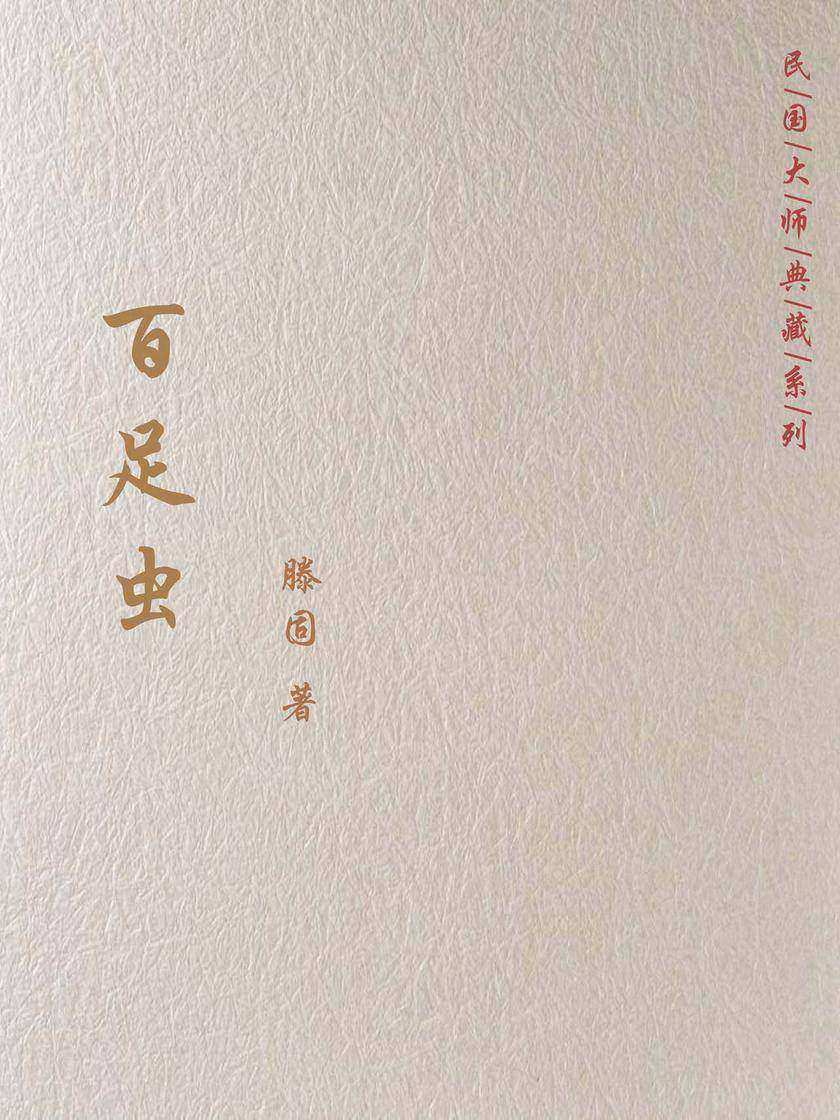 民|国|大|师|典|藏|系|列
百足虫
滕固 著